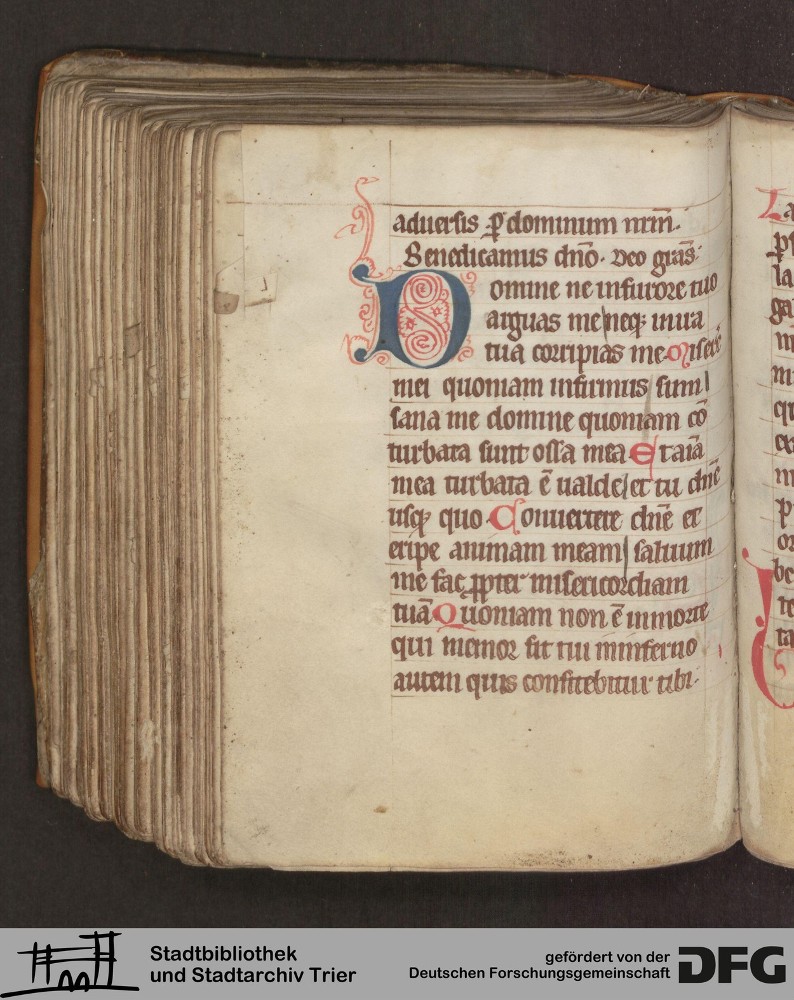 aduersis ꝑ dominum nr̄m.
Benedicamus dn̄o. Deo gr̄as.
Domine ne in furore tuo
arguas me neq; in ira
tua corripias me Misere
mei quoniam infirmus sum
sana me domine quoniam cō
turbata sunt ossa mea Et aīa
mea turbata ē ualde et tu dn̄e
usq; quo Conuertere dn̄e et
eripe animam meam saluum
me fac ꝓpter misericordiam
tuā Quoniam non ē in morte
qui memor sit tui in inferno
autem quis confitebitur tibi.
Stadtbibliothek
und Stadtarchiv Trier
gefördert von der
Deutschen Forschungsgemeinschaft
DFG